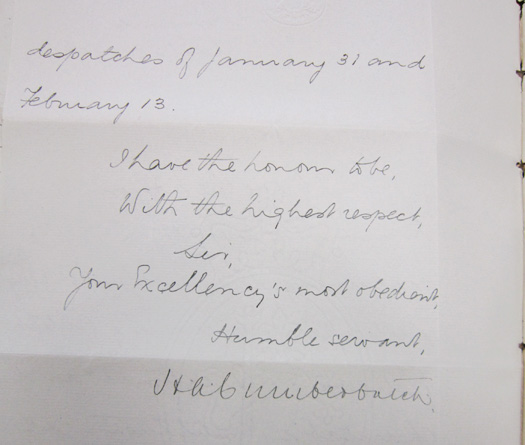 despatches of January 31 and
February 13.
I have the honour to be,
With the highest respect,
Sir,
Your Excellency's most obedient,
Humble servant,
HACumberbatch.